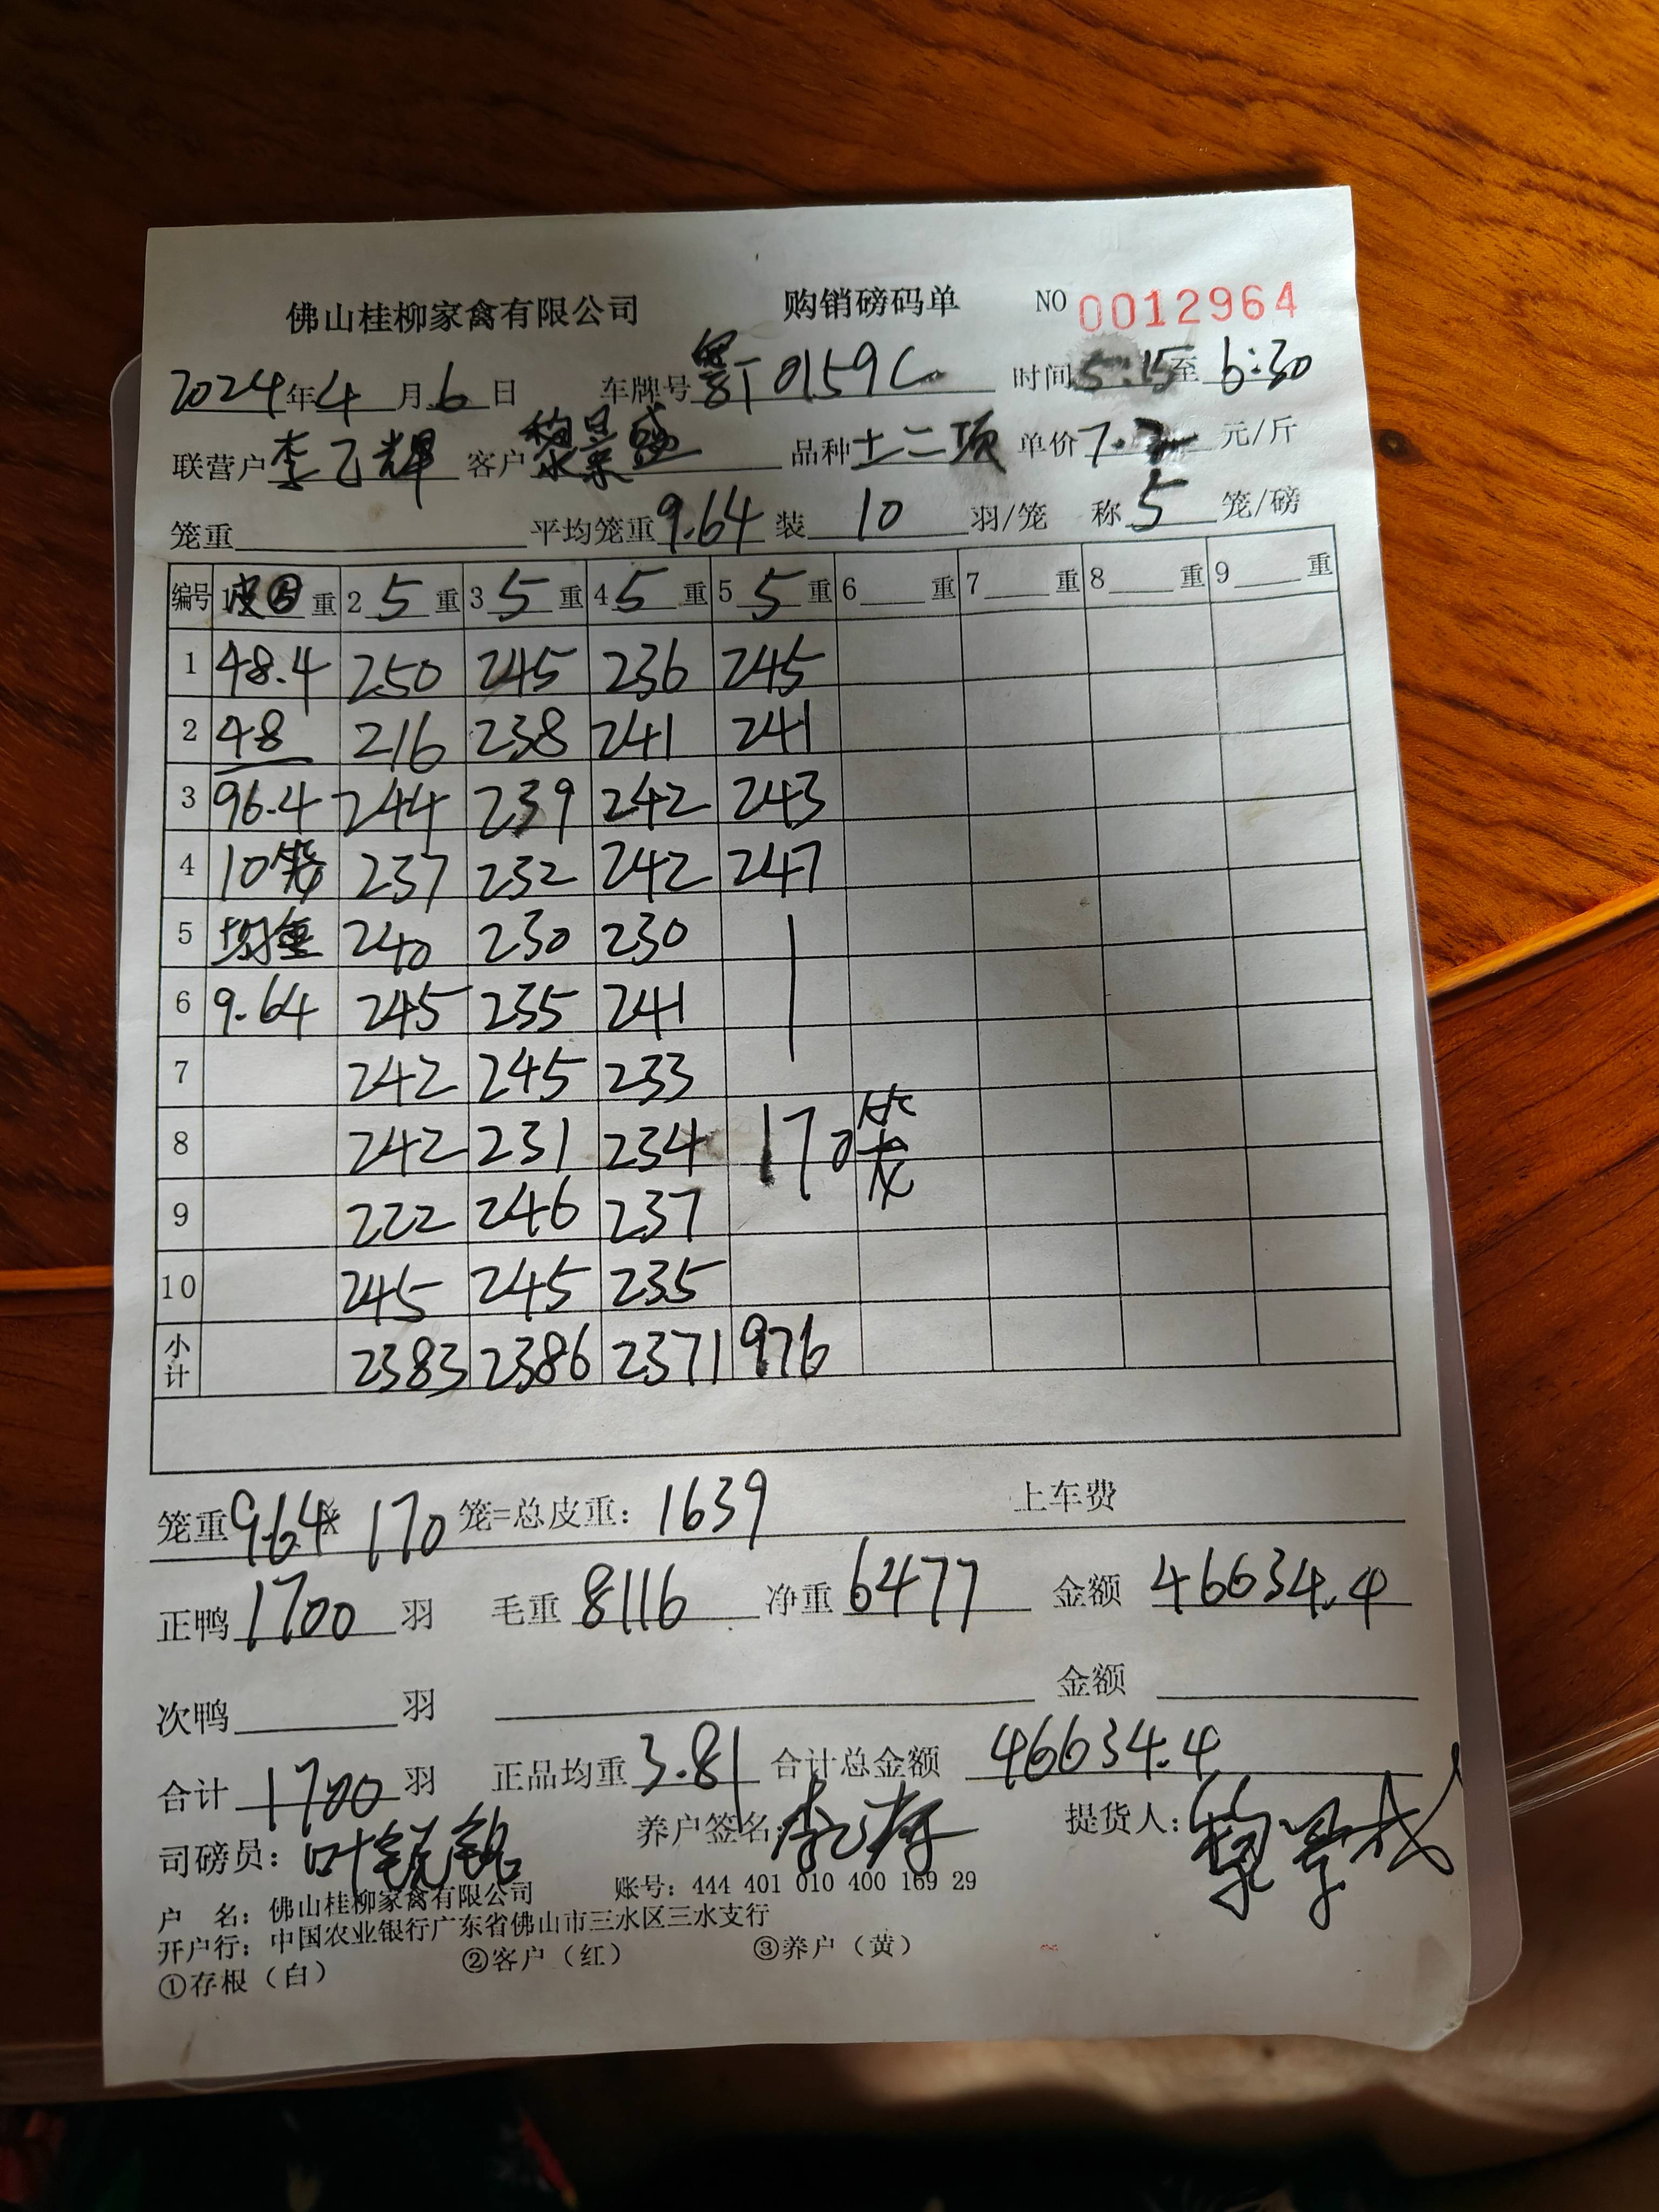 佛山桂柳家禽有限公司 购销磅码单 NO 0012964
2024年4月6日 车牌号 粤T0159C 时间5:15至6:30
联营户李乙辉 客户黎景盛 品种十二项 单价7.2 元/斤
笼重 平均笼重9.64 装 10 羽/笼 称 5 笼/磅
编号 1皮 重 2 5 重 3 5 重 4 5 重 5 5 重 6 重 7 重 8 重 9 重
1 48.4 250 245 236 245
2 48 216 238 241 241
3 96.4 244 239 242 243
4 10笼 237 232 242 247
5 均重 240 230 230
6 9.64 245 235 241
7 242 245 233
8 242 231 234 170笼
9 222 246 237
10 245 245 235
小计 2383 2386 2371 976
笼重9.64× 170 笼=总皮重: 1639 上车费
正鸭 1700 羽 毛重 8116 净重 6477 金额 46634.4
次鸭 羽 金额
合计 1700 羽 正品均重 3.81 合计总金额 46634.4
司磅员: 叶锐铭 养户签名: 提货人:
户 名: 佛山桂柳家禽有限公司 账号: 444 401 010 400 169 29
开户行: 中国农业银行广东省佛山市三水区三水支行
①存根（白） ②客户（红） ③养户（黄）